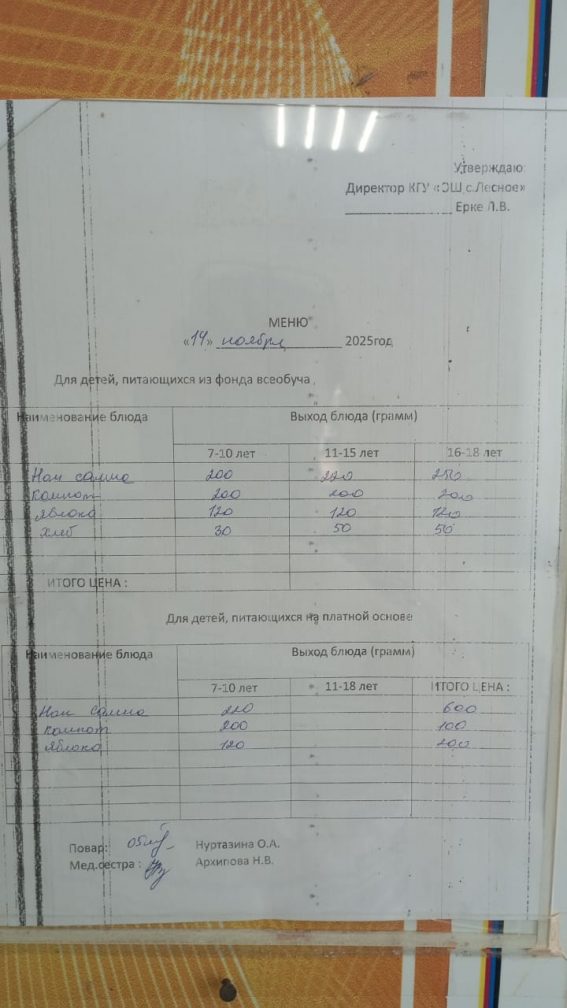 Утверждаю:
Директор КГУ «ОШ с.Лесное»
____________ Ерке Л.В.
МЕНЮ
«14» ноября 2025год
Для детей, питающихся из фонда всеобуча
Наименование блюда Выход блюда (грамм)
7-10 лет 11-15 лет 16-18 лет
Нан салма 200 220 250
компот 200 200 200
яблоко 120 120 120
хлеб 30 50 50
ИТОГО ЦЕНА :
Для детей, питающихся на платной основе
Наименование блюда Выход блюда (грамм)
7-10 лет 11-18 лет ИТОГО ЦЕНА :
Нан салма 220 600
компот 200 100
яблоко 120 200
Повар: Нуртазина О.А.
Мед.сестра : Архипова Н.В.